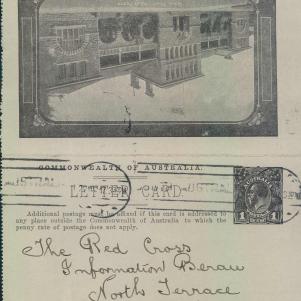 COMMONWEALTH OF AUSTRALIA.
LETTER CARD
Additional postage must be affixed if this card is addressed to
any place outside the Commonwealth of Australia to which the
penny rate of postage does not apply.
The Red Cross
Information Berau
North Terrace